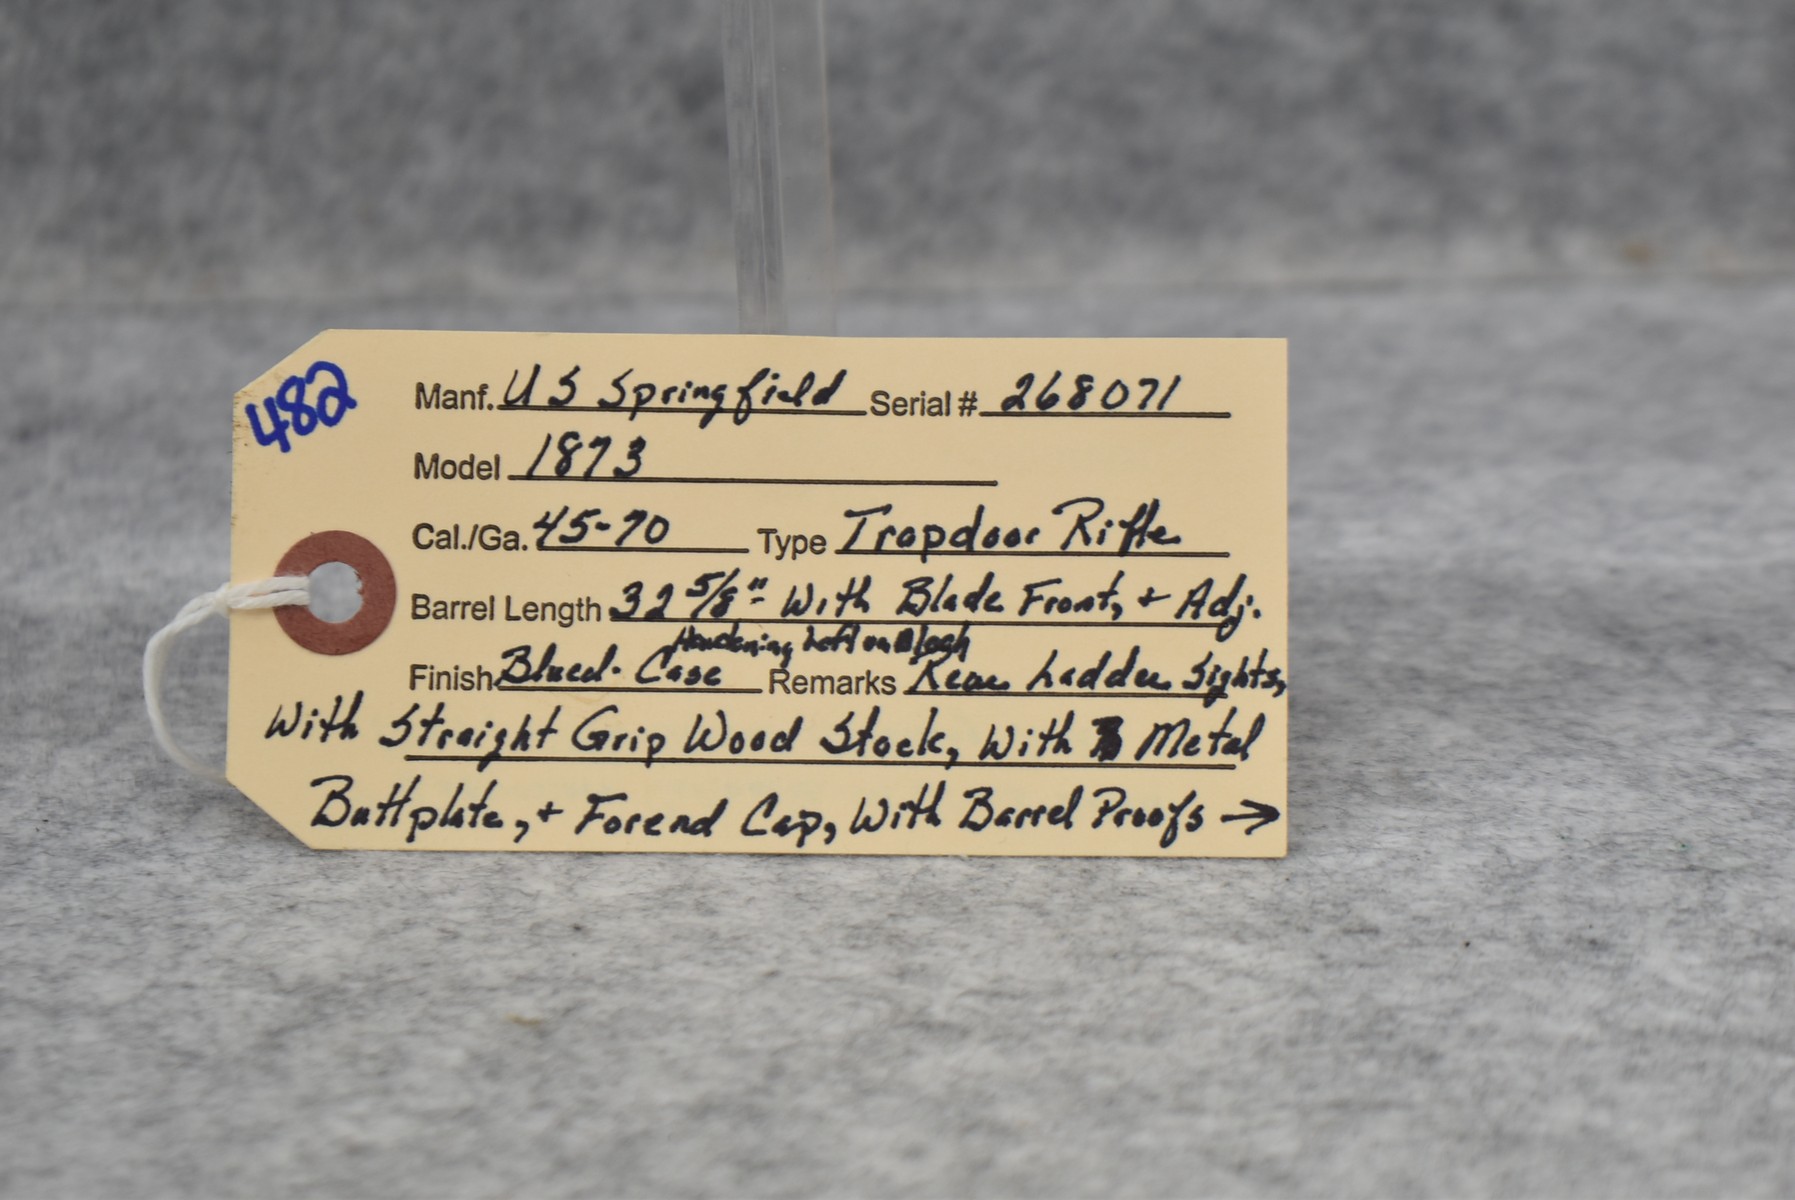 482
Manf. US Springfield Serial # 268071
Model 1873
Cal./Ga. 45-70 Type Trapdoor Rifle
Barrel Length 32 5/8" With Blade Front, + Adj.
Hardening Left on Block
Finish Blued. Case Remarks Rear Ladder Sights,
With Straight Grip Wood Stock, With Metal
Buttplate, + Forend Cap, With Barrel Proofs →